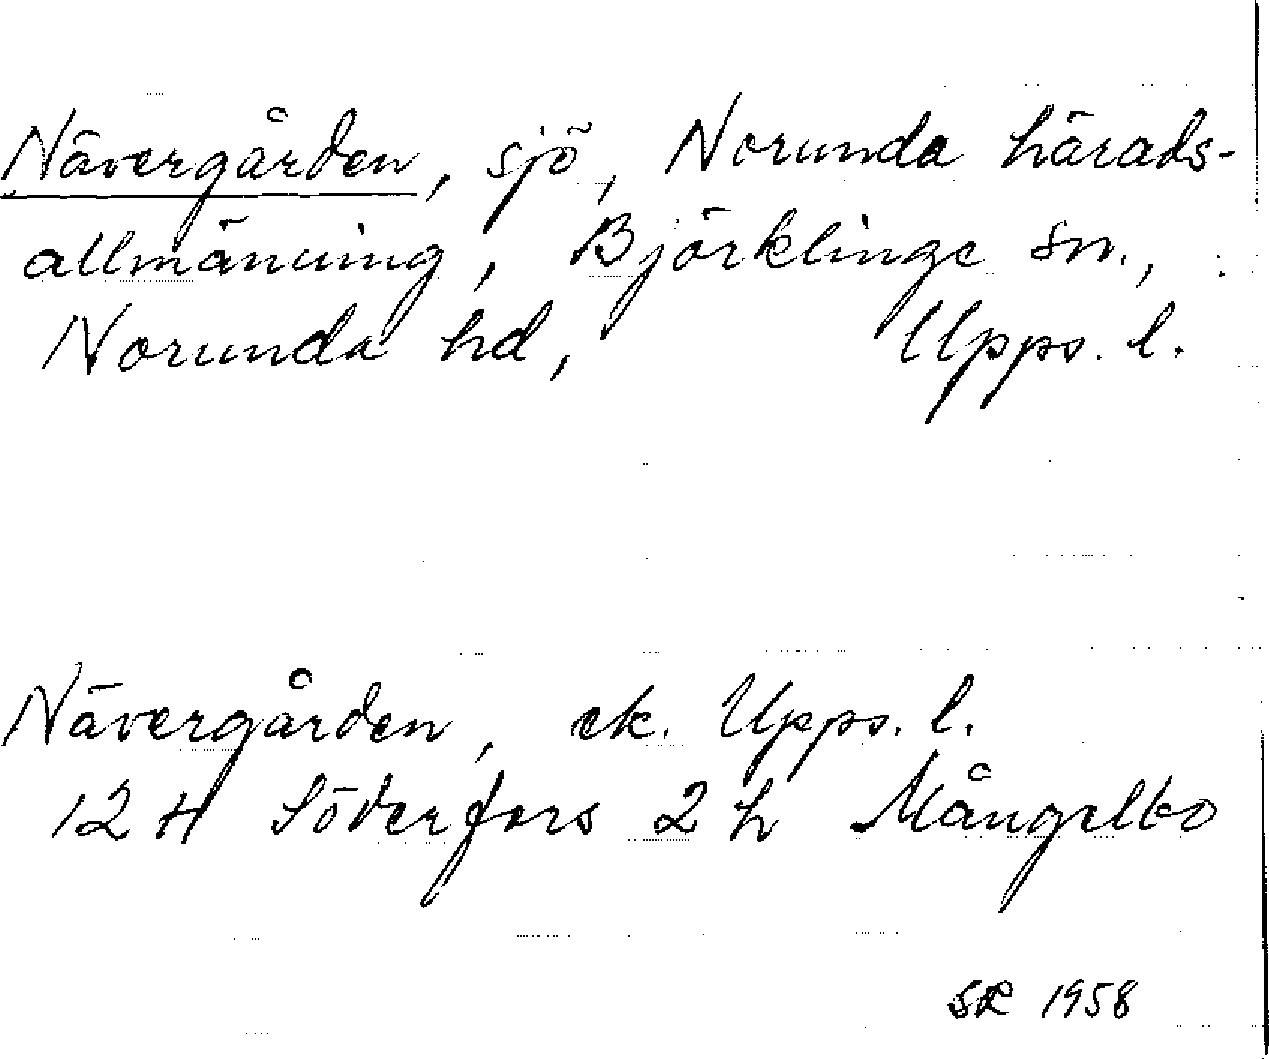 Nävergården, sjö, Norunda härads-
allmänning, Björklinge sn.,
Norunda hd, Upps. l.
Nävergården, ek. Upps. l.
12 H Söderfors 2 h Mångelbo
SR 1958